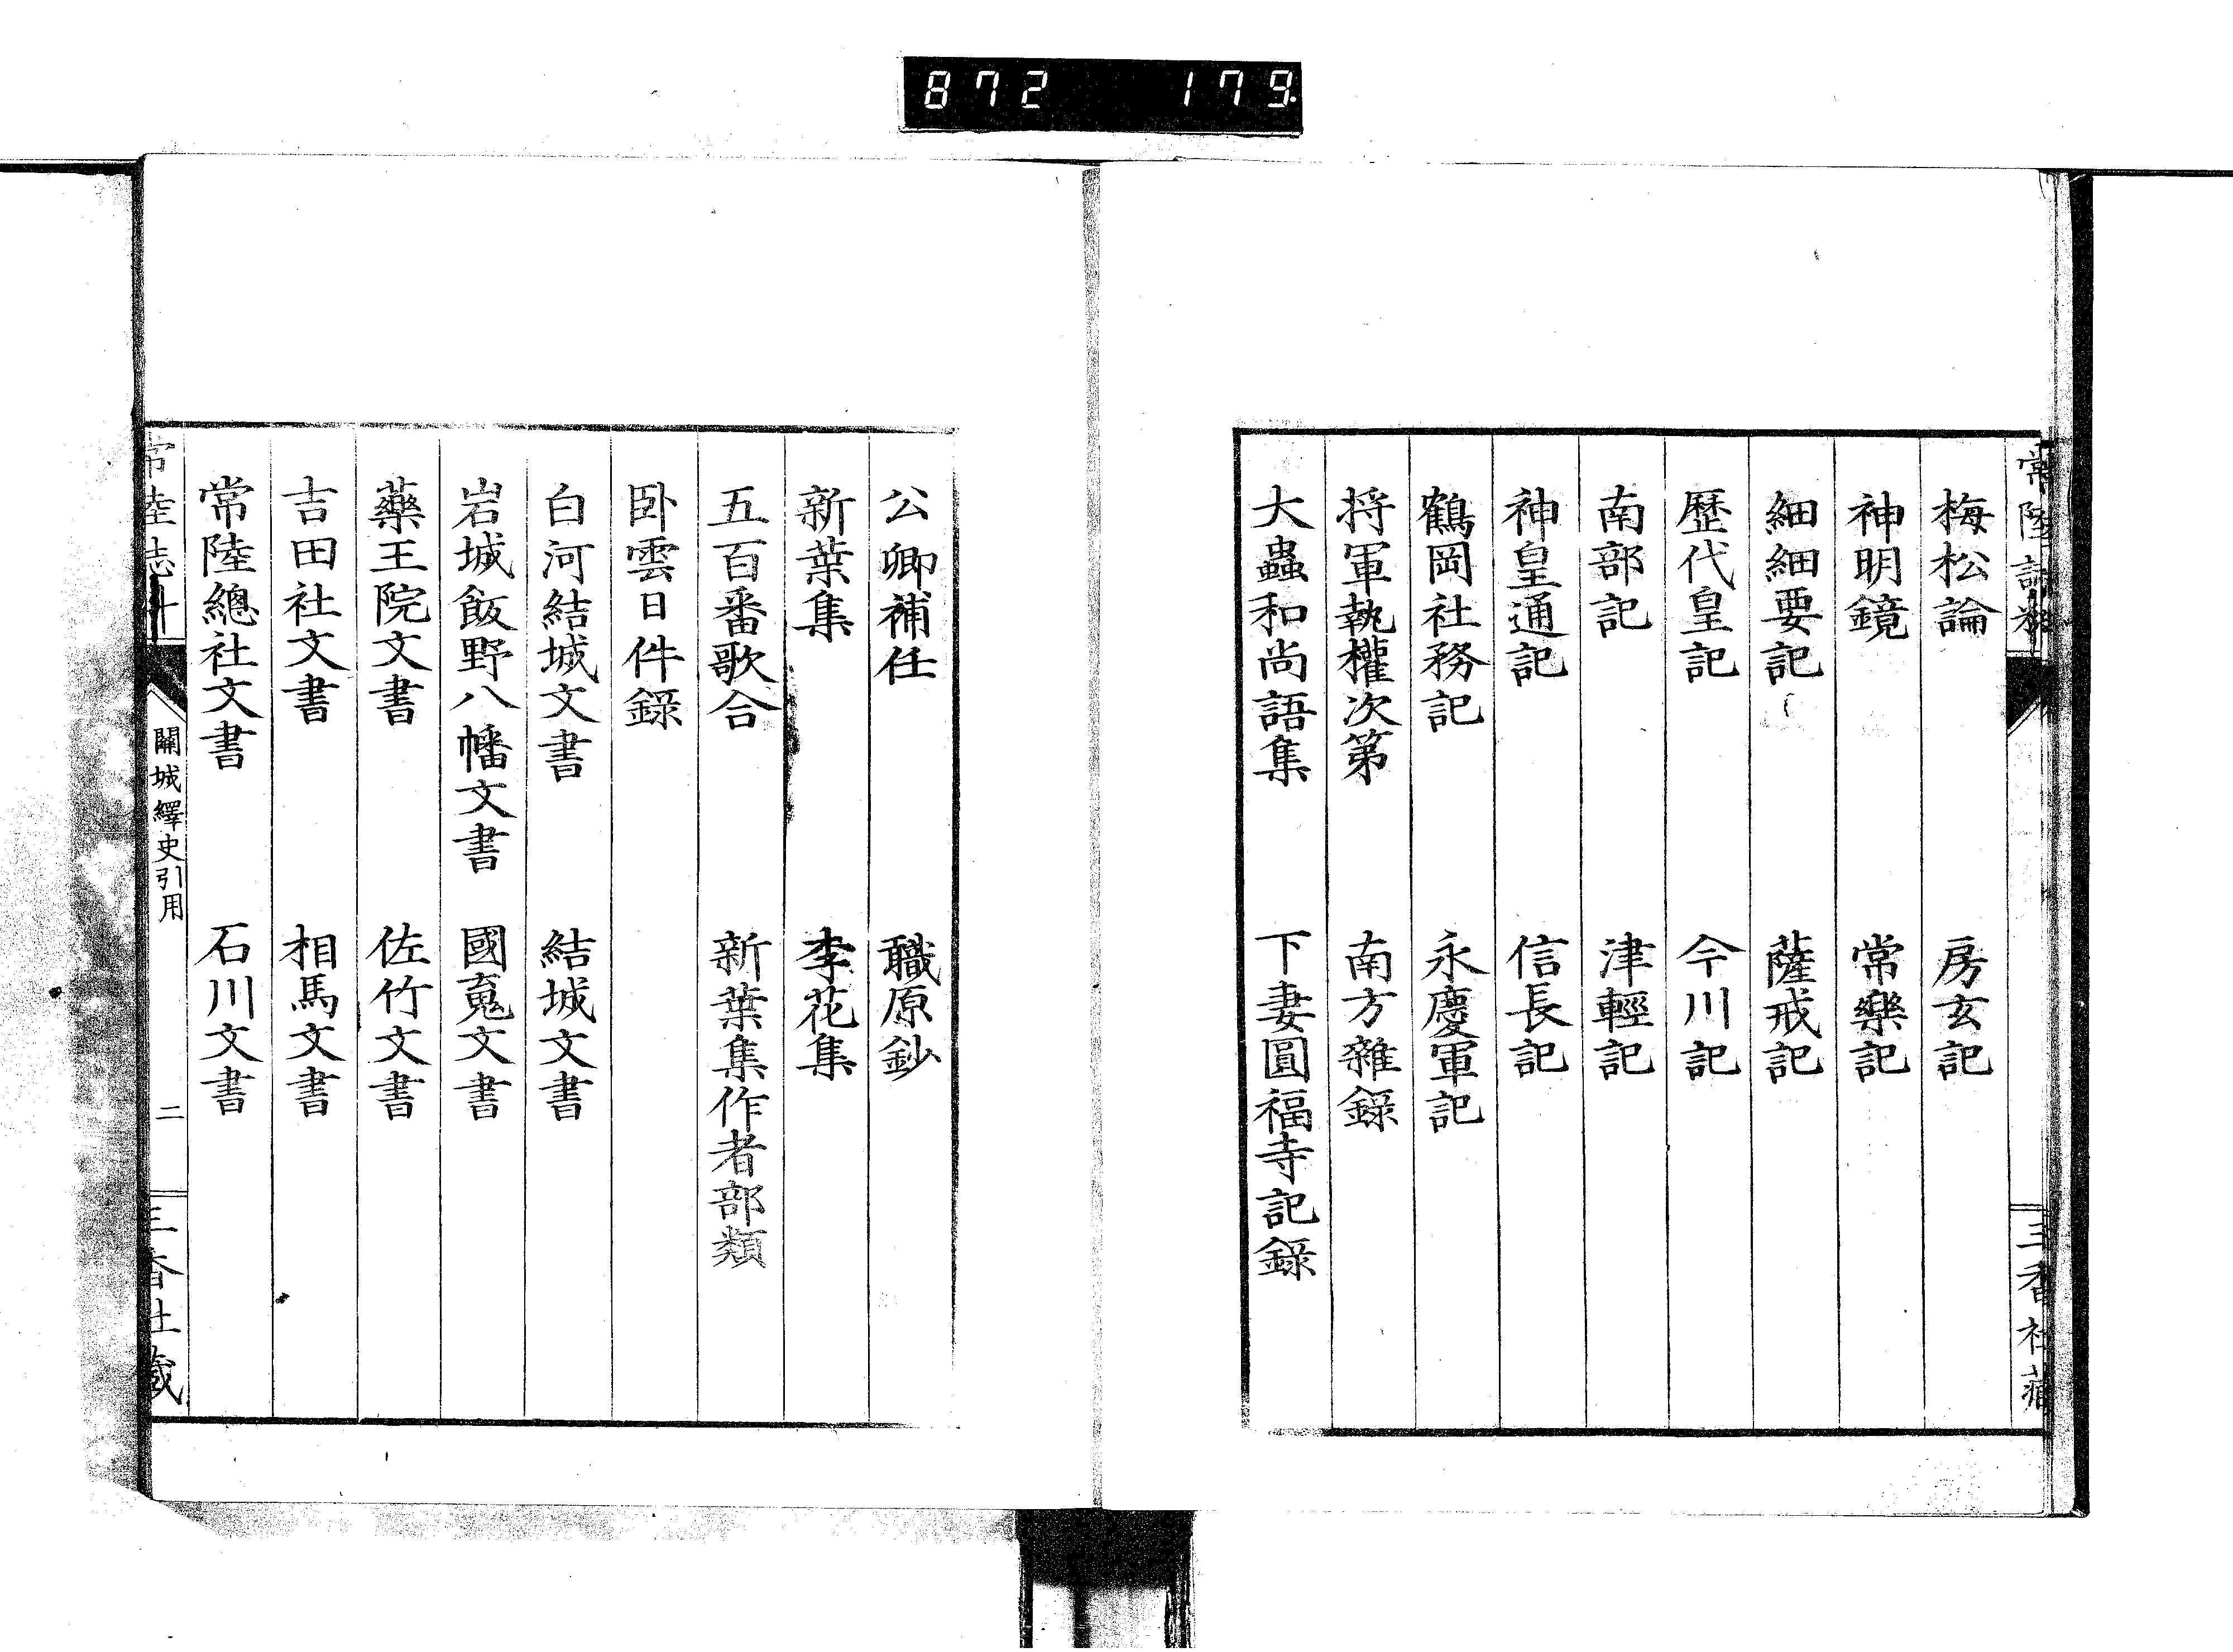 872 179
梅松論 房玄記
神明鏡 常樂記
細細要記 薩戒記
歷代皇記 今川記
南部記 津輕記
神皇通記 信長記
鶴岡社務記 永慶軍記
將軍執權次第 南方雜錄
大蟲和尚語集 下妻圓福寺記錄
三香社藏
公卿補任 職原鈔
新葉集 李花集
五百番歌合 新葉集作者部類
卧雲日件錄
白河結城文書 結城文書
岩城飯野八幡文書 國䰟文書
藥王院文書 佐竹文書
吉田社文書 相馬文書
常陸總社文書 石川文書
關城繹史引用 二
三香社藏